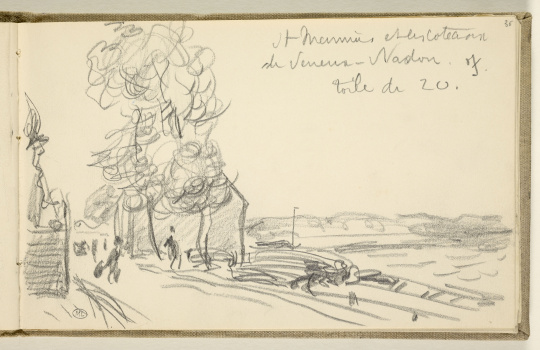 36
St Mammès et les coteaux
de Veneux-Nadon.
toile de 20.